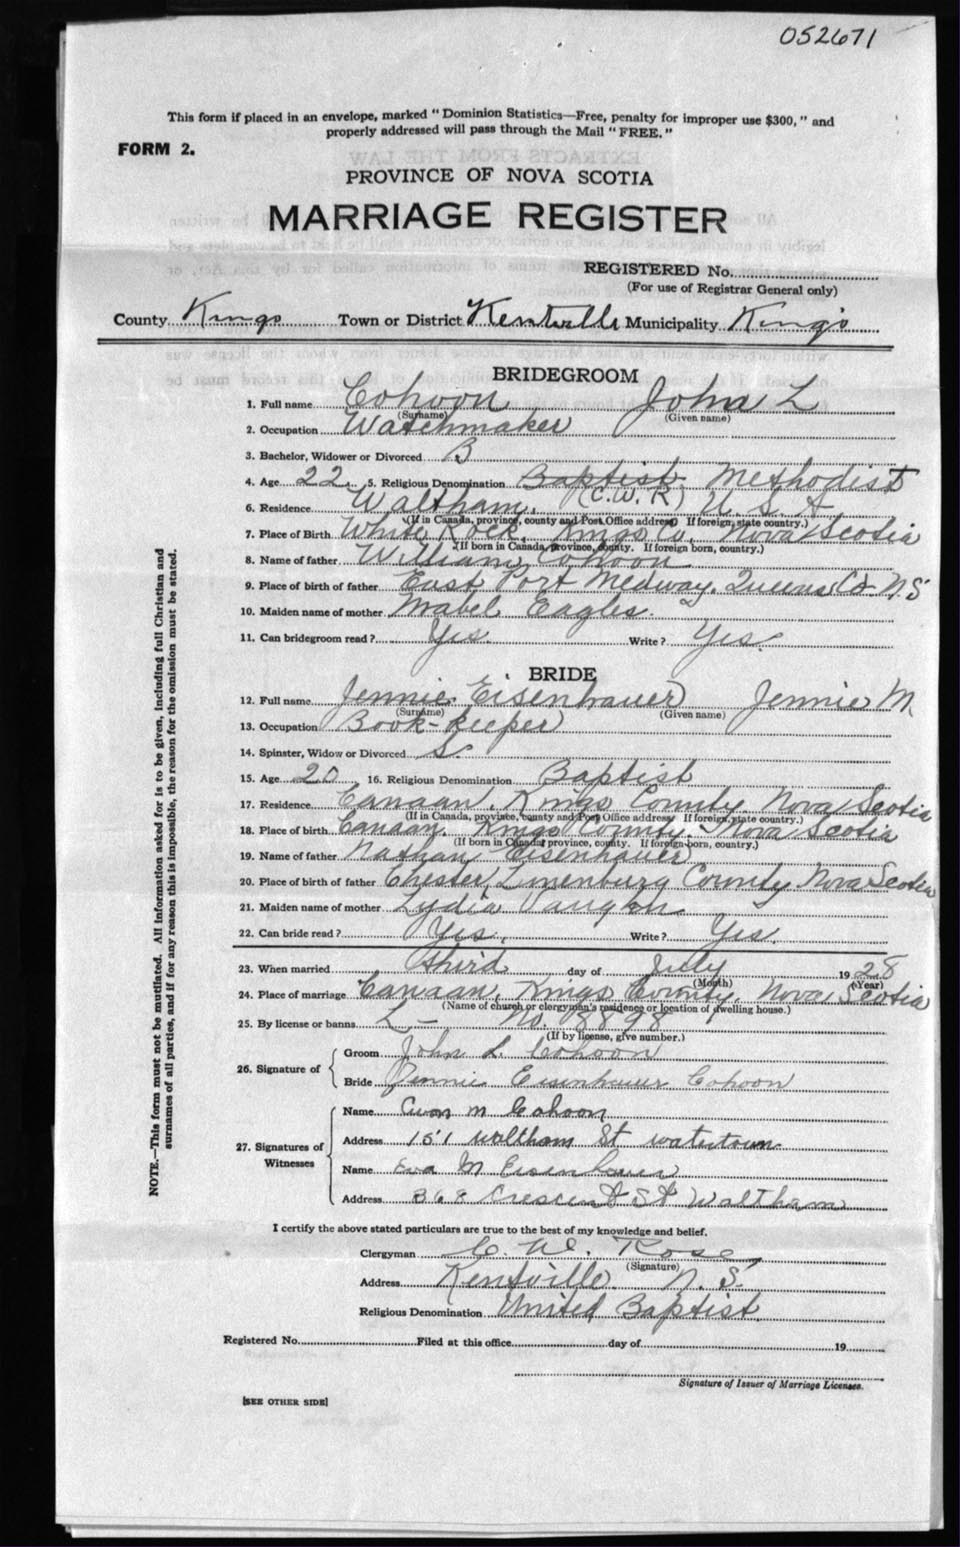 052671
This form if placed in an envelope, marked "Dominion Statistics—Free, penalty for improper use $300," and
properly addressed will pass through the Mail "FREE."
FORM 2.
PROVINCE OF NOVA SCOTIA
MARRIAGE REGISTER
REGISTERED No.
(For use of Registrar General only)
County Kings Town or District Kentville Municipality King's
BRIDEGROOM
1. Full name Cohoon John L
(Surname) (Given name)
2. Occupation Watchmaker
3. Bachelor, Widower or Divorced B
4. Age 22 5. Religious Denomination Baptist Methodist
(C.W.R)
6. Residence Waltham, U.S.A
(If in Canada, province, county and Post Office address) If foreign, state country.)
7. Place of Birth White Rock, Kings Co. Nova Scotia
(If born in Canada, province, county. If foreign born, country.)
8. Name of father William Cohoon
9. Place of birth of father East Port Medway, Queens Co. N.S
10. Maiden name of mother Mabel Eagles.
11. Can bridegroom read? Yes. Write? Yes.
BRIDE
12. Full name Jennie Eisenhauer Jennie M.
(Surname) (Given name)
13. Occupation Book-keeper
14. Spinster, Widow or Divorced S.
15. Age 20 16. Religious Denomination Baptist
17. Residence Canaan, Kings County, Nova Scotia
(If in Canada, province, county and Post Office address If foreign, state country.)
18. Place of birth Canaan, Kings County, Nova Scotia
(If born in Canada, province, county. If foreign-born, country.)
19. Name of father Nathan Eisenhauer
20. Place of birth of father Chester, Lunenburg County Nova Scotia
21. Maiden name of mother Lydia Vaughn
22. Can bride read? Yes. Write? Yes.
23. When married third day of July 1928
(Month) (Year)
24. Place of marriage Canaan, Kings County, Nova Scotia
(Name of church or clergyman's residence or location of dwelling house.)
25. By license or banns L – No. 8898
(If by license, give number.)
26. Signature of
Groom John L. Cohoon
Bride Jennie Eisenhauer Cohoon
27. Signatures of Witnesses
Name M Cohoon
Address 151 Waltham St Watertown
Name Eva M Eisenhauer
Address 368 Crescent St Waltham
I certify the above stated particulars are true to the best of my knowledge and belief.
Clergyman C. W. Rose
(Signature)
Address Kentville N.S.
Religious Denomination United Baptist.
Registered No. Filed at this office day of 19
Signature of Issuer of Marriage Licenses.
[SEE OTHER SIDE]
NOTE.—This form must not be mutilated. All information asked for is to be given, including full Christian and
surnames of all parties, and if for any reason this is impossible, the reason for the omission must be stated.